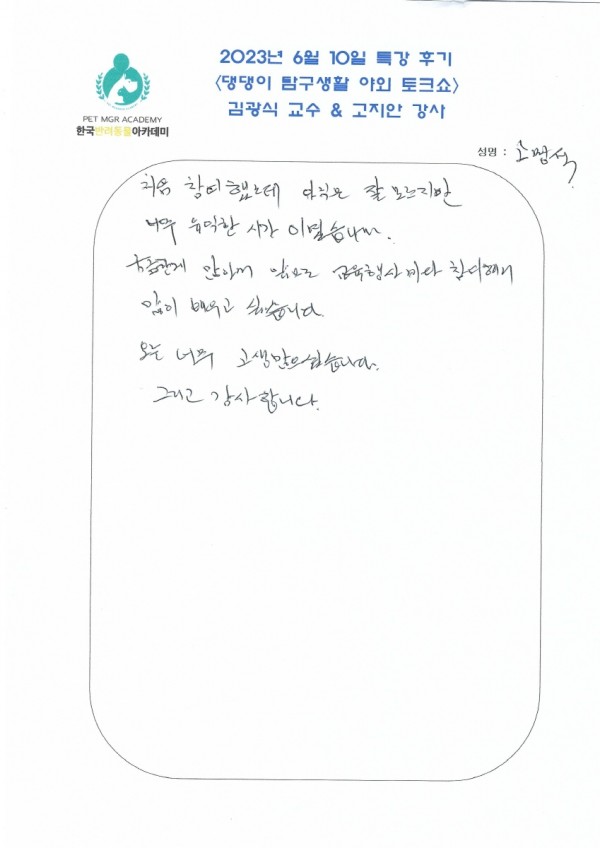 2023년 6월 10일 특강 후기
<댕댕이 탐구생활 야외 토크쇼>
김광식 교수 & 고지안 강사
PET MGR ACADEMY
한국반려동물아카데미
성명 :
처음 참여했는데 아직은 잘 모르지만
너무 유익한 시간 이였습니다.
앞으로 교육행사마다 참여해서
많이 배우고 싶습니다.
오늘 너무 고생많으셨습니다.
그리고 감사합니다.